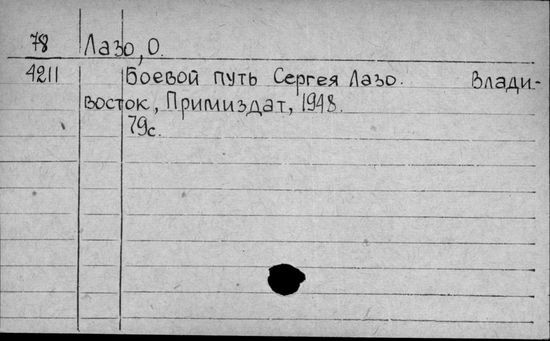 78 Лазо, О.
4211 Боевой путь Сергея Лазо. Влади-
восток, Примиздат, 1948.
79с.